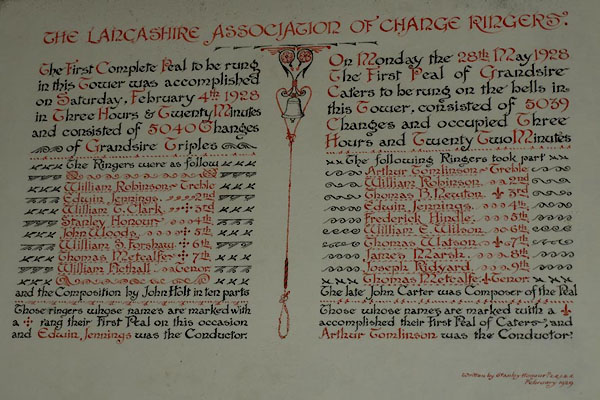 THE LANCASHIRE ASSOCIATION OF CHANGE RINGERS.
The First Complete Peal to be rung
in this Tower was accomplished
on Saturday, February 4th 1928
in Three Hours & Twenty Minutes
and consisted of 5040 Changes
of Grandsire Triples
The Ringers were as follow
William Robinson Treble
Edwin Jennings 2nd
William T. Clark 3rd
Stanley Honour 4th
John Woods 5th
William S. Forshaw 6th
Thomas Metcalfe 7th
William Pickall Tenor
and the Composition by John Holt in ten parts
Those ringers whose names are marked with
a rang their First Peal on this occasion
and Edwin Jennings was the Conductor.
On Monday the 28th May 1928
The First Peal of Grandsire
Caters to be rung on the bells in
this Tower, consisted of 5039
Changes and occupied Three
Hours and Twenty Two Minutes
The following Ringers took part
Arthur Tomlinson Treble
William Robinson 2nd
Thomas B. 3rd
Edwin Jennings 4th
Frederick Hindle 5th
William E. Wilson 6th
Thomas Watson 7th
James Marsh 8th
Joseph Ridyard 9th
Thomas Metcalfe Tenor
The late John Carter was Composer of the Peal
Those whose names are marked with a
accomplished their First Peal of Caters, and
Arthur Tomlinson was the Conductor.
Written by Stanley Honour
February 1929